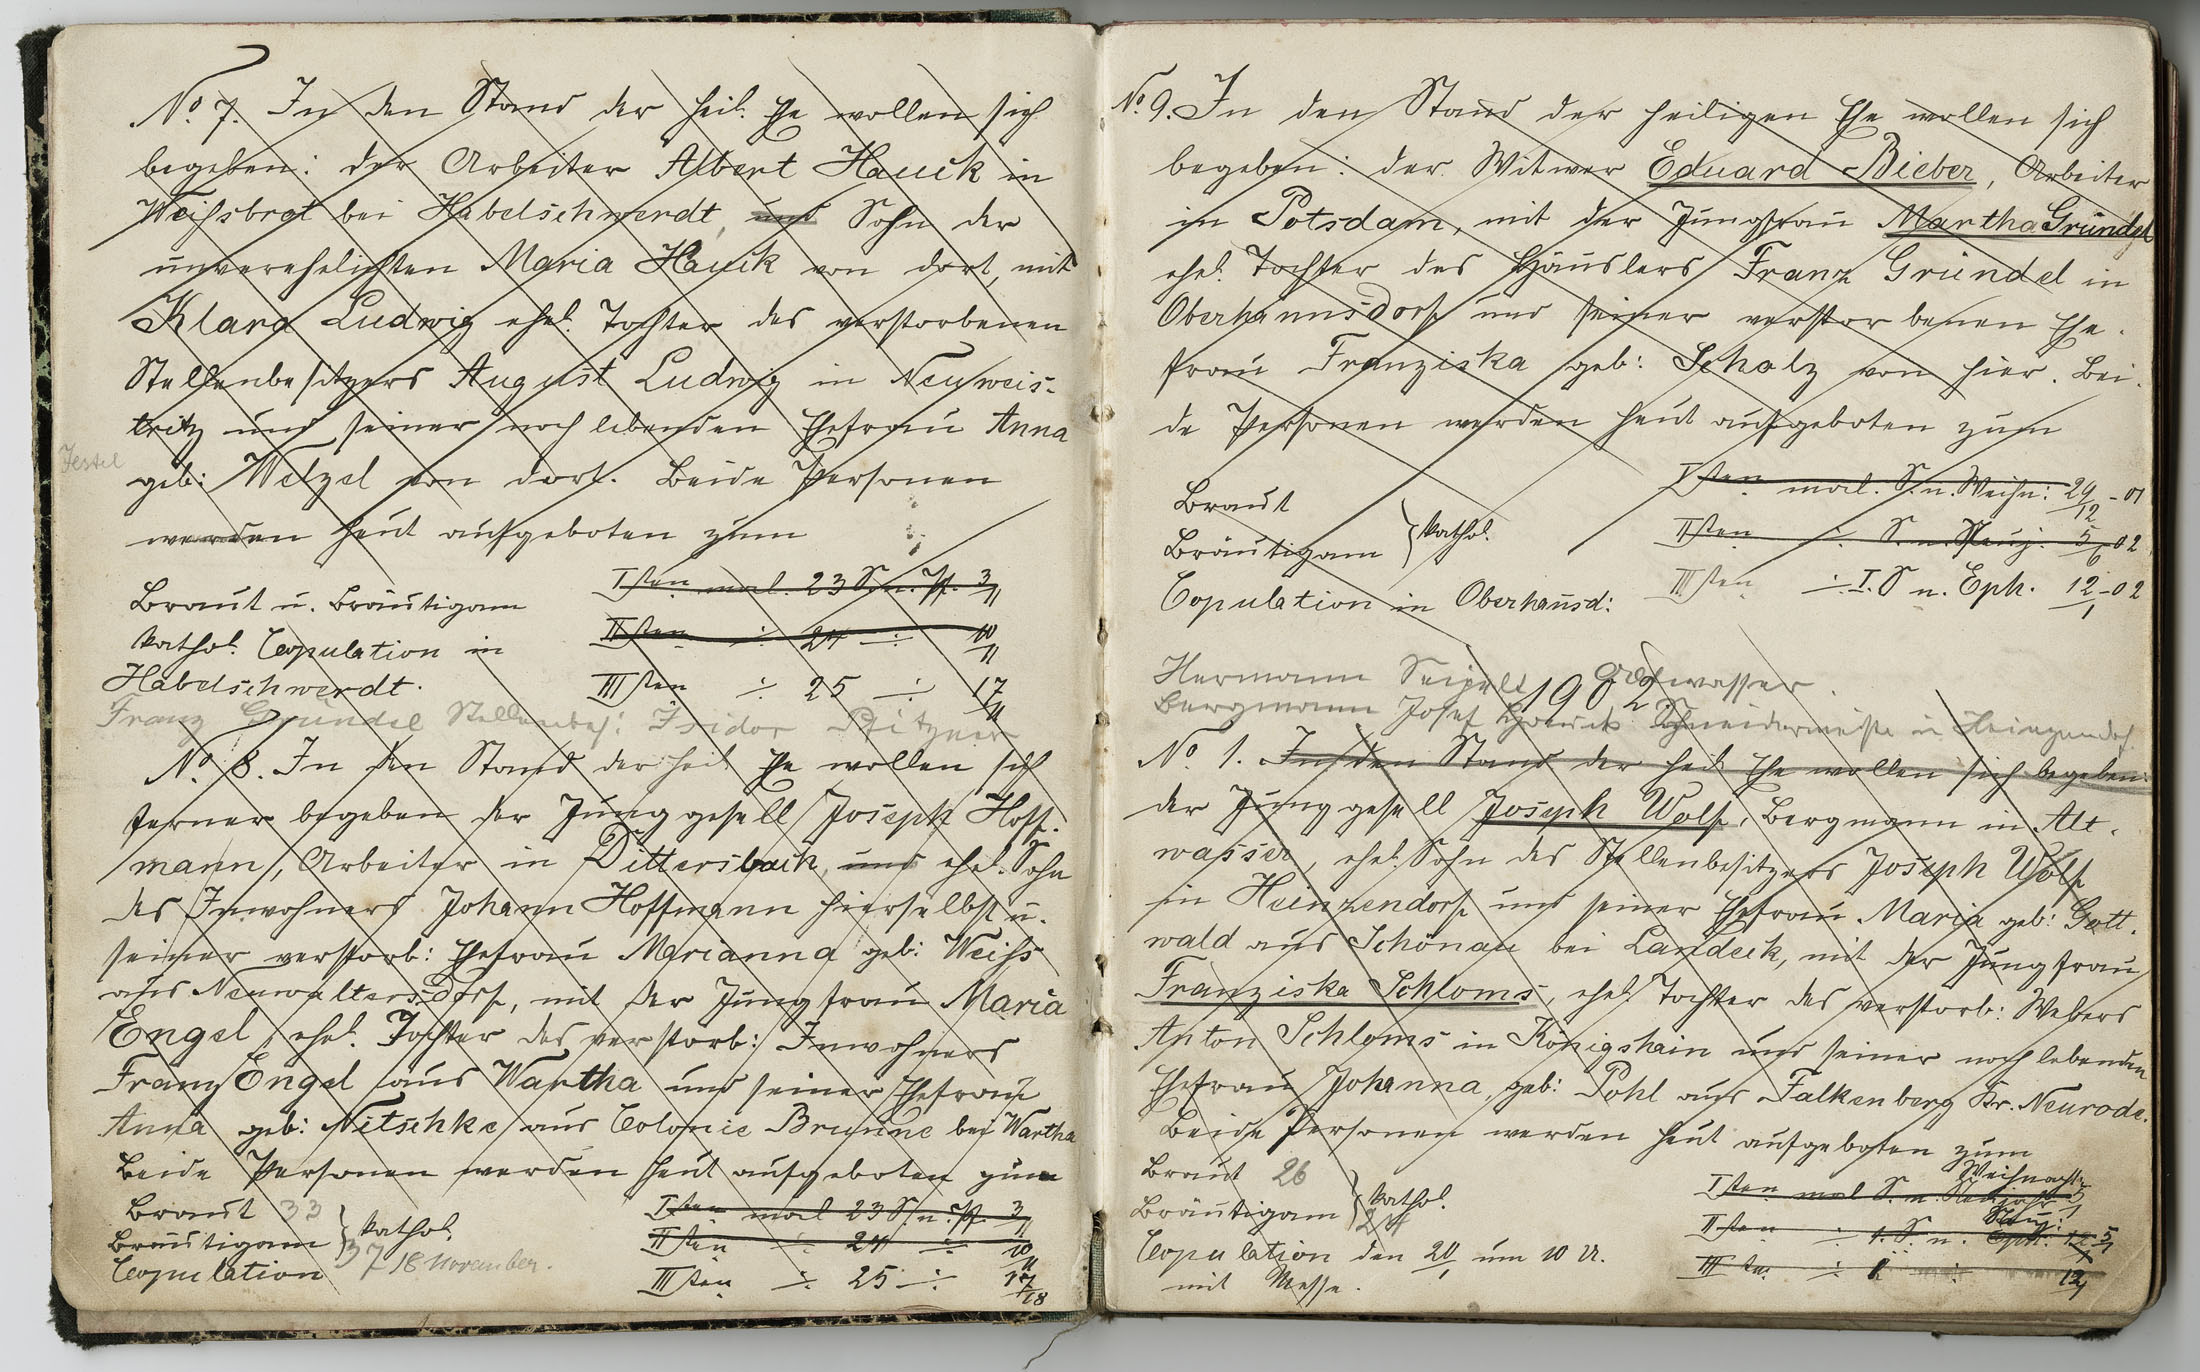 No. 7. In den Stand der heil. Ehe wollen sich
begeben: der Arbeiter Albert Hauck in
Weißbrot bei Habelschwerdt, und Sohn der
unverehelichten Maria Hauck von dort, mit
Klara Ludwig ehel. Tochter des verstorbenen
Stellenbesitzers August Ludwig in Neuweis-
tritz und seiner noch lebenden Ehefrau Anna
geb: Welzel von dort. Beide Personen
werden heut aufgeboten zum
Braut u. Bräutigam
kathol. Copulation in
Habelschwerdt.
Isten mal. 23 S. n. Pf. 3/11
IIten ÷ 24 ÷ 10/11
IIIten ÷ 25 ÷ 17/11
Franz Gründel Stellenbes: Isidor Bitzner
No. 8. In den Stand der heil. Ehe wollen sich
ferner begeben der Junggesell Joseph Hoff-
mann, Arbeiter in Dittersbach, und ehel. Sohn
des Inwohners Johann Hoffmann hierselbst u.
seiner verstorb: Ehefrau Marianna geb: Weiß
aus Neuwaltersdorf, mit der Jungfrau Maria
Engel, ehel. Tochter des verstorb: Inwohners
Franz Engel aus Wartha und seiner Ehefrau
Anna geb: Nitschke aus Colonie Brunne bei Wartha
Beide Personen werden heut aufgeboten zum
Braut 33
Bräutigam } kathol.
Copulation 37 18 November.
Isten mal 23 S. n. Pf. 3/11
IIten ÷ 24 ÷ 10/11
IIIten ÷ 25 ÷ 17/18
No. 9. In den Stand der heiligen Ehe wollen sich
begeben: der Witwer Eduard Bieber, Arbeiter
in Potsdam, mit der Jungfrau Martha Gründel
ehel. Tochter des Häuslers Franz Gründel in
Oberhannsdorf und seiner verstorbenen Ehe-
frau Franziska geb: Scholz von hier. Bei-
de Personen werden heut aufgeboten zum
Braut
Bräutigam } kathol.
Copulation in Oberhansd:
Isten mal. S. n. Weihn: 29/12 - 01
IIten ÷ S. n. Neuj. 5/6 02
IIIten ÷ I. S n. Eph. 12/1 - 02
Hermann Seipelt Altwasser.
1902
Bergmann Josef Schneidermeister in Heinzendorf
No. 1. In den Stand der heil. Ehe wollen sich begeben:
der Junggesell Joseph Wolf, Bergmann in Alt-
wasser, ehel. Sohn des Stellenbesitzers Joseph Wolf
in Heinzendorf und seiner Ehefrau Maria geb: Gott-
wald aus Schönau bei Landeck, mit der Jungfrau
Franziska Schloms, ehel. Tochter des verstorb: Webers
Anton Schloms in Königshain und seiner noch lebenden
Ehefrau Johanna, geb: Pohl aus Falkenberg Kr. Neurode.
Beide Personen werden heut aufgeboten zum
Braut 26
Bräutigam } kathol.
Copulation den 20/1 um 10 U.
mit Messe.
Weihnacht:
Isten mal S. n. Neujahr
Neuj:
IIten ÷ 1. S. n. Eph. 5/1
IIIten ÷ 12/1